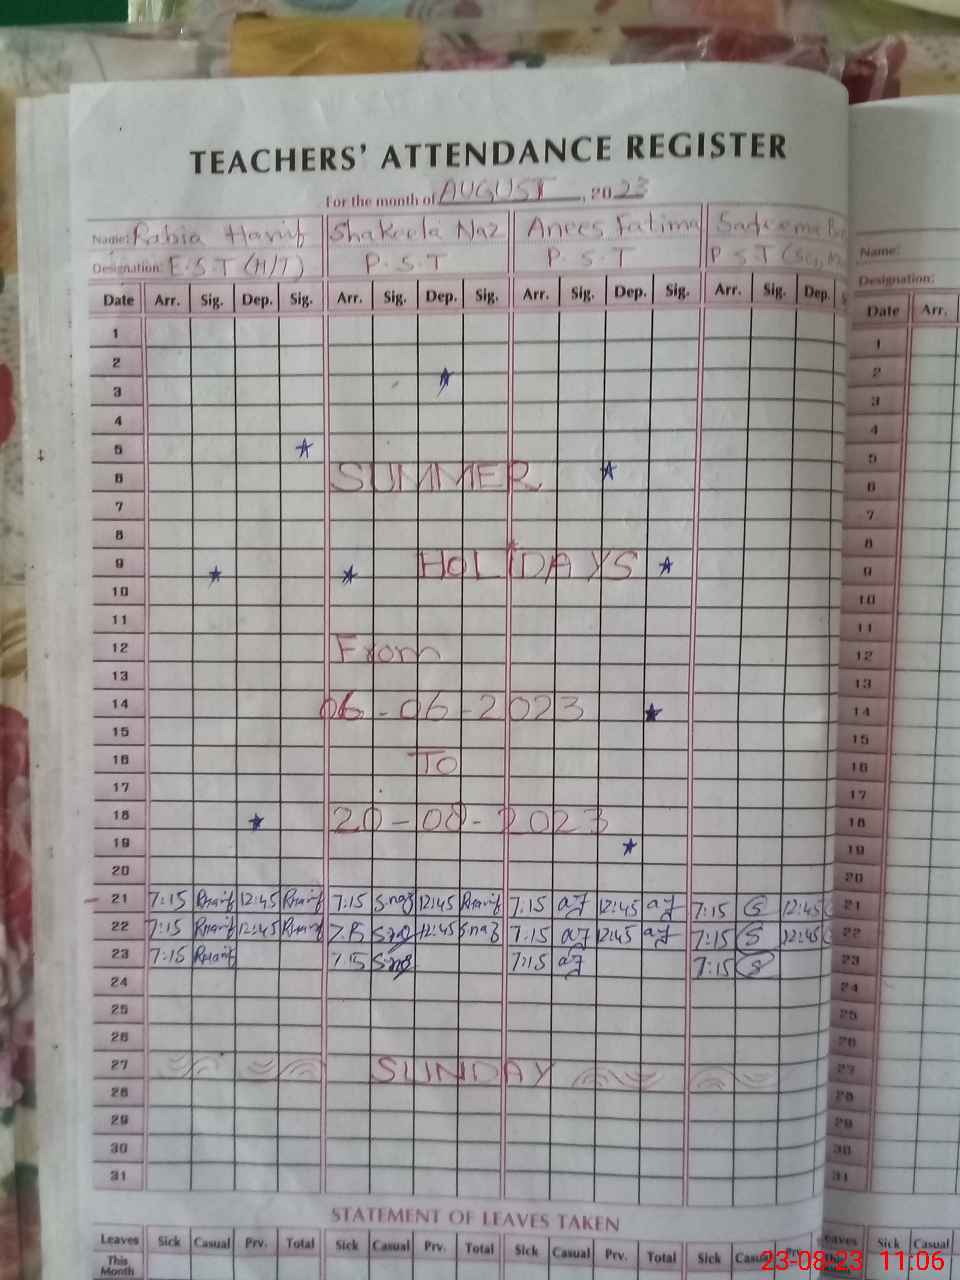 TEACHERS' ATTENDANCE REGISTER
For the month of AUGUST, 2023
Name: Rabia Hanif Shakeela Naz Anees Fatima Sadeema
Designation: E.S.T (H/T) P.S.T P.S.T P.S.T
Date Arr. Sig. Dep. Sig. Arr. Sig. Dep. Sig. Arr. Sig. Dep. Sig. Arr. Sig. Dep. S
1
2
3
4
5
6 SUMMER
7
8
9 HOLIDAYS
10
11
12 From
13
14 06-06-2023
15
16 TO
17
18 20-08-2023
19
20
21 7:15 RHanif 12:45 RHanif 7:15 S.naz 12:45 RHanif 7:15 af 12:45 af 7:15 S 12:45
22 7:15 RHanif 12:45 RHanif 7:15 S.naz 12:45 S.naz 7:15 af 12:45 af 7:15 S 12:45
23 7:15 RHanif 7:15 S.naz 7:15 af 7:15 S
24
25
26
27 SUNDAY
28
29
30
31
STATEMENT OF LEAVES TAKEN
Leaves Sick Casual Prv. Total Sick Casual Prv. Total Sick Casual Prv. Total Sick Casual Prv.
This
Month
Name:
Designation:
Date Arr.
1
2
3
4
5
6
7
8
9
10
11
12
13
14
15
16
17
18
19
20
21
22
23
24
25
26
27
28
29
30
31
Leaves Sick Casual
23-08-23 11:06